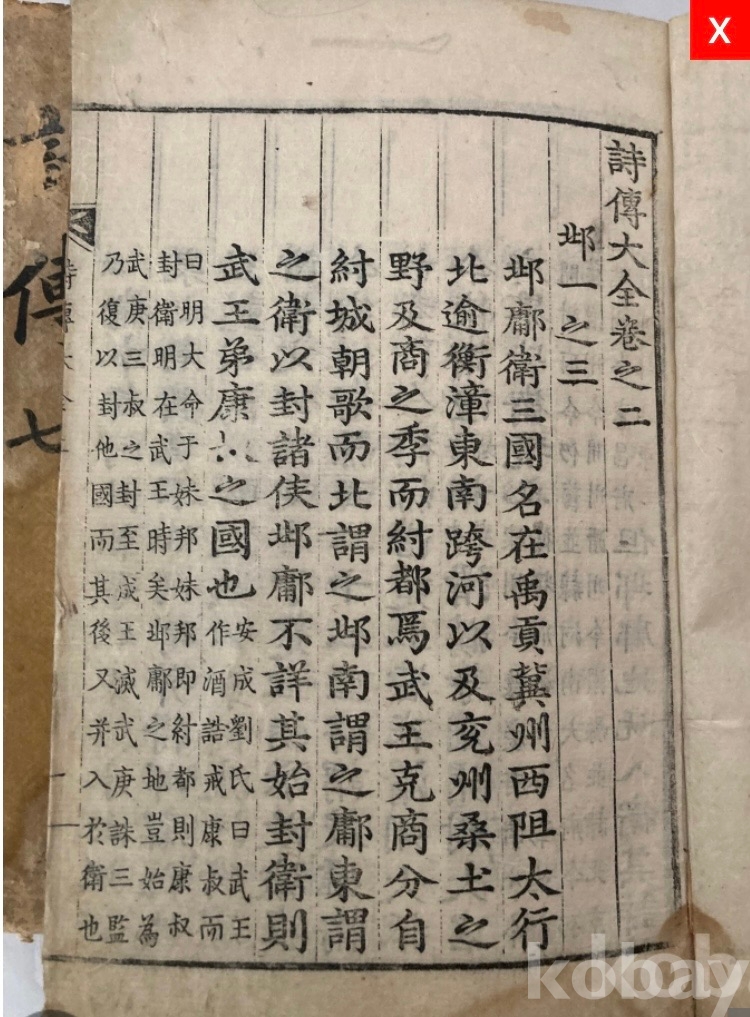 X
詩傳大全卷之二
邶一之三
邶鄘衛三國名在禹貢冀州西阻太行
北逾衡漳東南跨河以及兗州桑土之
野及商之季而紂都焉武王克商分自
紂城朝歌而北謂之邶南謂之鄘東謂
之衛以封諸侯邶鄘不詳其始封衛則
武王弟康之國也
安成劉氏曰武王
作酒誥戒康叔而
曰明大命于妹邦妹邦即紂都則康叔
封衛明在武王時矣邶鄘之地豈始為
武庚三叔之封至成王滅武庚誅三監
乃復以封他國而其後又并入於衛也
詩傳大全
傳 七
kobay